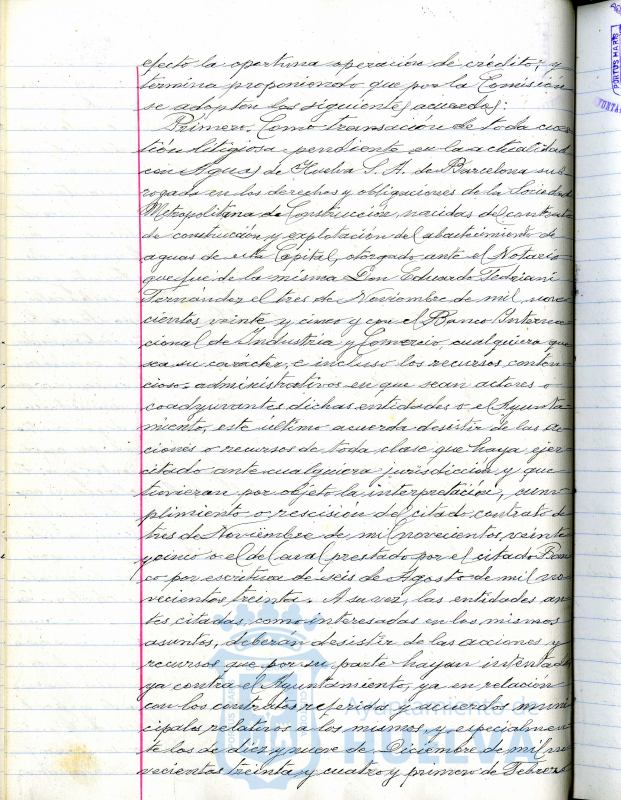 efecto la oportuna operación de crédito; y
termina proponiendo que por la Comisión
se adopten los siguientes acuerdos:
Primero. Como transación de toda cues-
tión litigiosa pendiente en la actualidad
con Aguas de Huelva S. A. de Barcelona sub-
rogada en los derechos y obligaciones de la Sociedad
Metropolitana de Construcción, nacidas del contrato
de construcción y explotación del abastecimiento de
aguas de esta Capital, otorgado ante el Notario
que fué de la misma Don Eduardo Fedriani
Fernández el tres de Noviembre de mil nove-
cientos veinte y cinco y con el Banco Interna-
cional de Industria y Comercio, cualquiera que
sea su carácter, e incluso los recursos conten-
cioso-administrativos en que sean actores o
coadyuvantes dichas entidades o el Ayunta-
miento, este último acuerda desistir de las ac-
ciones o recursos de toda clase que haya ejer-
citado ante cualquiera jurisdicción y que
tuvieran por objeto la interpretación, cum-
plimiento o rescisión del citado contrato de
tres de Noviembre de mil novecientos veinte
y cinco o el de aval prestado por el citado Ban-
co por escritura de seis de Agosto de mil no-
vecientos treinta. A su vez, las entidades an-
tes citadas, como interesadas en los mismos
asuntos, deberán desistir de las acciones y
recursos que por su parte hayan intentado
ya contra el Ayuntamiento, ya en relación
con los contratos referidos y acuerdos muni-
cipales relativos a los mismos y especialmen-
te los de diez y nueve de Diciembre de mil no-
vecientos treinta y cuatro y primero de Febrero
Ayuntamiento de
HUELVA
PORTUS MARIS